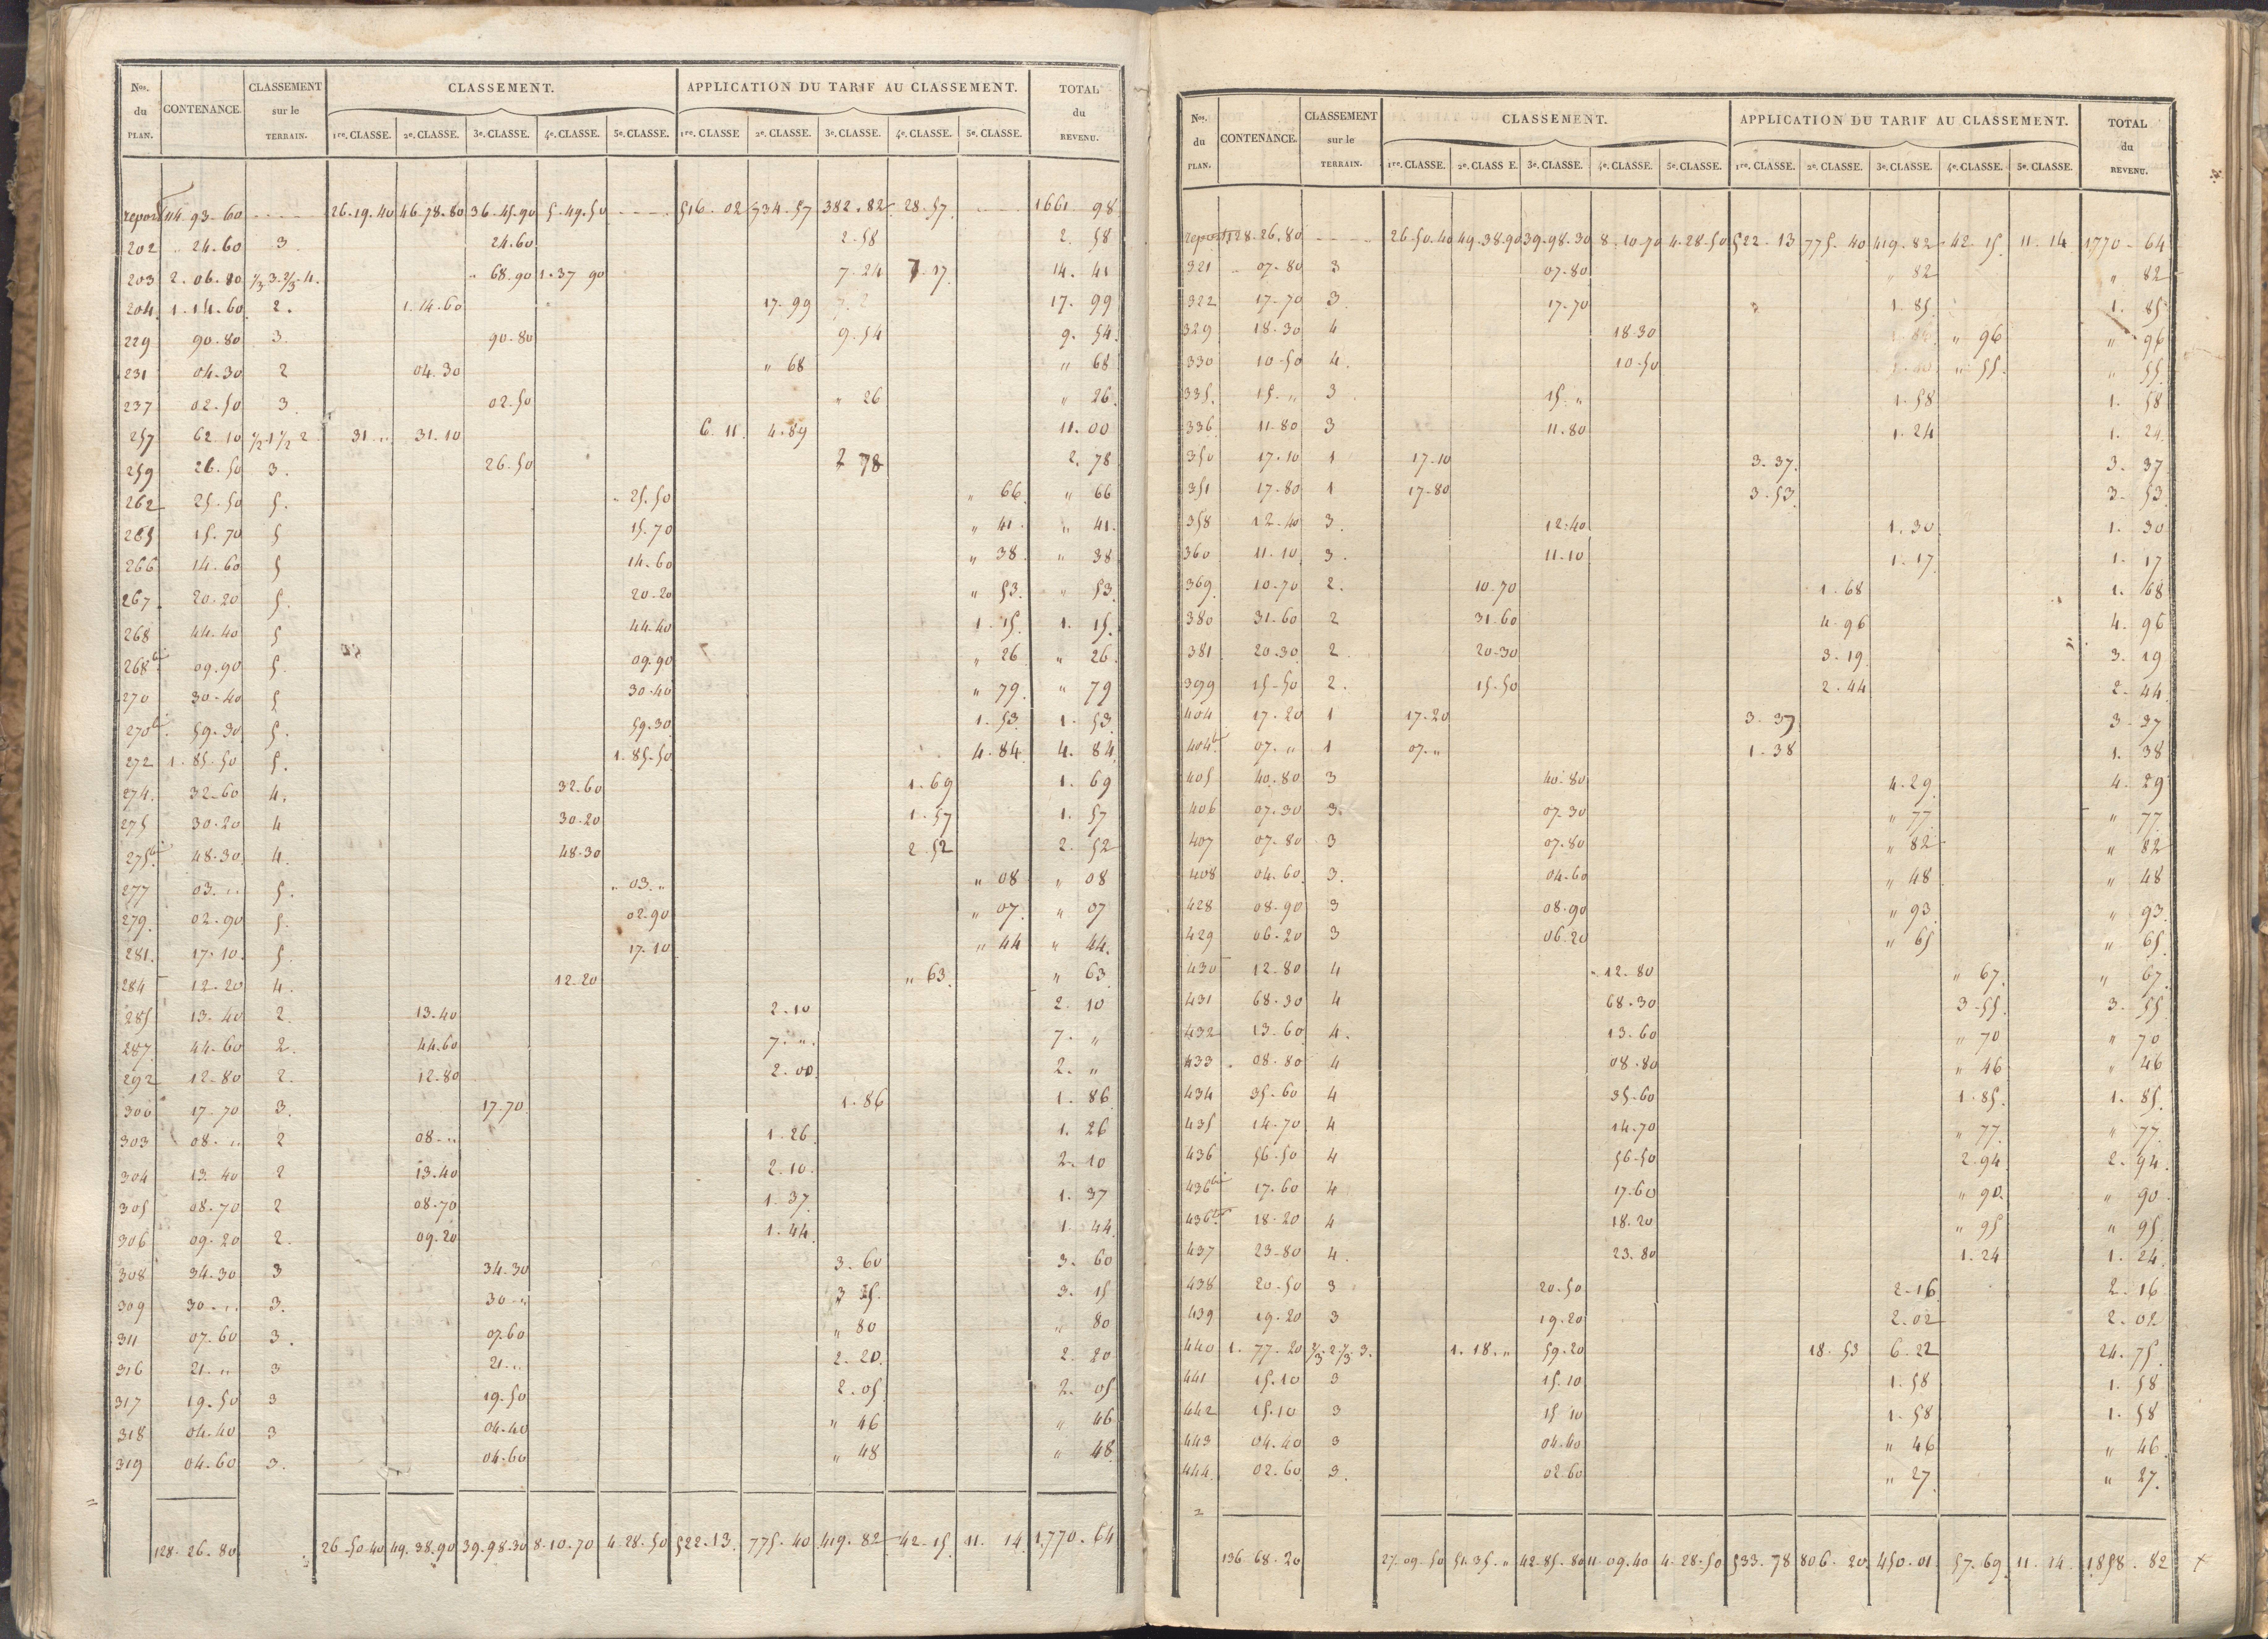 Nos. du PLAN. CONTENANCE. CLASSEMENT sur le TERRAIN. CLASSEMENT. APPLICATION DU TARIF AU CLASSEMENT. TOTAL du REVENU.
1re. CLASSE. 2e. CLASSE. 3e. CLASSE. 4e. CLASSE. 5e. CLASSE. 1re. CLASSE 2e. CLASSE. 3e. CLASSE. 4e. CLASSE. 5e. CLASSE.
report 114. 93. 60 26. 19. 40 46. 78. 80 36. 45. 90 5. 49. 50 516. 02 734. 57 382. 82 28. 57 1661 98
202 24. 60 3 24. 60 2. 58 2. 58
203 2. 06. 80 1/3 3. 2/3 4. 68. 90 1. 37 90 7. 24 7. 17 14. 41
204 1. 14. 60 2. 1. 14. 60 17. 99 17. 99
229 90. 80 3. 90. 80 9. 54 9. 54
231 04. 30 2 04. 30 " 68 " 68
237 02. 50 3 02. 50 " 26 " 26
257 62. 10 1/2 1 1/2 2 31 " 31. 10 6. 11 4. 89 11. 00
259 26. 50 3. 26. 50 2 78 2. 78
262 25. 50 5. 25. 50 " 66 " 66
265 15. 70 5 15. 70 " 41 " 41
266 14. 60 5 14. 60 " 38 " 38
267 20. 20 5. 20. 20 " 53 " 53
268 44. 40 5 44. 40 1. 15 1. 15
268bis 09. 90 5. 09. 90 " 26 " 26
270 30. 40 5 30. 40 " 79 " 79
270bis 59. 30 5. 59. 30 1. 53 1. 53
272 1. 85. 50 5. 1. 85. 50 4. 84 4. 84
274 32. 60 4. 32. 60 1. 69 1. 69
275 30. 20 4 30. 20 1. 57 1. 57
275bis 48. 30 4. 48. 30 2. 52 2. 52
277 03. " 5. 03. " " 08 " 08
279. 02. 90 5. 02. 90 " 07 " 07
281. 17. 10 5. 17. 10 " 44 " 44
284 12. 20 4. 12. 20 " 63 " 63
285 13. 40 2. 13. 40 2. 10 2. 10
287 44. 60 2. 44. 60 7. " 7. "
292 12. 80 2. 12. 80 2. 00 2. "
300 17. 70 3. 17. 70 1. 86 1. 86
303 08. " 2 08. " 1. 26 1. 26
304 13. 40 2 13. 40 2. 10 2. 10
305 08. 70 2 08. 70 1. 37 1. 37
306 09. 20 2. 09. 20 1. 44 1. 44
308 34. 30 3 34. 30 3. 60 3. 60
309 30. " 3. 30 " 3 15 3. 15
311 07. 60 3. 07. 60 " 80 " 80
316 21. " 3 21. " 2. 20 2. 20
317 19. 50 3 19. 50 2. 05 2. 05
318 04. 40 3 04. 40 " 46 " 46
319 04. 60 3. 04. 60 " 48 " 48
128. 26. 80 26. 50 40 49. 38. 90 39. 98. 30 8. 10. 70 4. 28. 50 522. 13 775. 40 419. 82 42. 15 11. 14 1,770. 64
Nos. du PLAN. CONTENANCE. CLASSEMENT sur le TERRAIN. CLASSEMENT. APPLICATION DU TARIF AU CLASSEMENT. TOTAL du REVENU.
1re. CLASSE. 2e. CLASS E. 3e. CLASSE. 4e. CLASSE. 5e. CLASSE. 1re. CLASSE. 2e. CLASSE. 3e. CLASSE. 4e. CLASSE. 5e. CLASSE.
report 128. 26. 80 26. 50. 40 49. 38. 90 39. 98. 30 8. 10. 70 4. 28. 50 522. 13 775. 40 419. 82 42. 15 11. 14 1,770. 64
321 07. 80 3 07. 80 " 82 " 82
322 17. 70 3. 17. 70 1. 85 1. 85
329 18. 30 4 18 30 " 96 " 96
330 10. 50 4. 10. 50 " 55 " 55
335. 15. " 3 15. " 1. 58 1. 58
336 11. 80 3 11. 80 1. 24 1. 24
350 17. 10 1 17. 10 3. 37 3. 37
351 17. 80 1 17. 80 3. 53 3. 53
358 12. 40 3. 12. 40 1. 30 1. 30
360 11. 10 3. 11. 10 1. 17 1. 17
369 10. 70 2. 10. 70 1. 68 1. 68
380 31. 60 2 31. 60 4. 96 4. 96
381 20. 30 2 20. 30 3. 19 3. 19
399 15. 50 2. 15. 50 2. 44 2. 44
404 17. 20 1 17. 20 3. 37 3. 37
404bis 07. " 1 07. " 1. 38 1. 38
405 40. 80 3 40. 80 4. 29 4. 29
406 07. 30 3. 07. 30 " 77 " 77
407 07. 80 3 07. 80 " 82 " 82
408 04. 60 3. 04. 60 " 48 " 48
428 08. 90 3 08. 90 " 93 " 93
429 06. 20 3 06. 20 " 65 " 65
430 12. 80 4 12. 80 " 67 " 67
431 68. 30 4 68. 30 3. 55 3. 55
432 13. 60 4. 13. 60 " 70 " 70
433 08. 80 4 08. 80 " 46 " 46
434 35. 60 4 35. 60 1. 85 1. 85
435 14. 70 4 14. 70 " 77 " 77
436 56. 50 4 56. 50 2. 94 2. 94
436bis 17. 60 4 17. 60 " 90 " 90
436ter 18. 20 4 18. 20 " 95 " 95
437 23. 80 4. 23. 80 1. 24 1. 24
438 20. 50 3 20. 50 2. 16 2. 16
439 19. 20 3 19. 20 2. 02 2. 02
440 1. 77. 20 2/3 2. 1/3 3. 1. 18. " 59. 20 18. 53 6. 22 24. 75
441 15. 10 3 15. 10 1. 58 1. 58
442 15. 10 3 15 10 1. 58 1. 58
443 04. 40 3 04. 40 " 46 " 46
444 02. 60 3. 02. 60 " 27 " 27
136. 68. 20 27. 09. 50 51. 35. " 42. 85. 80 11. 09. 40 4. 28. 50 533. 78 806. 20 450. 01 57. 69 11. 14 1858. 82